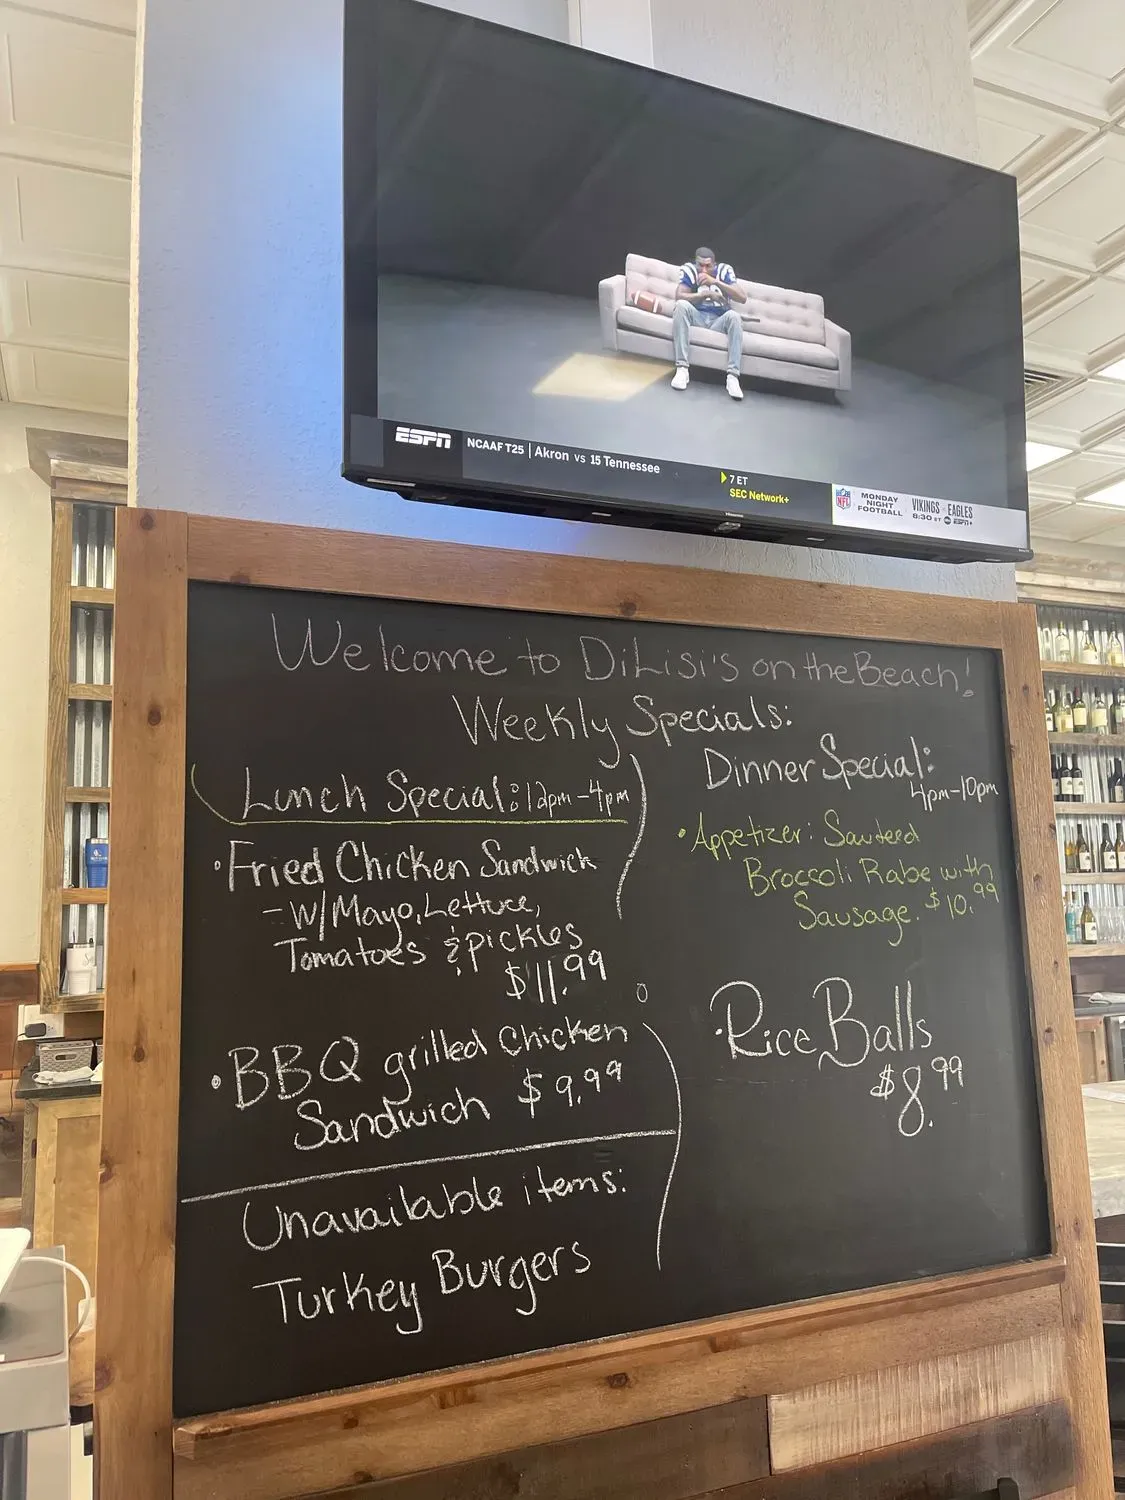 ESPN
NCAAF T25 | Akron vs 15 Tennessee
7 ET
SEC Network+
NFL
MONDAY
NIGHT
FOOTBALL
VIKINGS EAGLES
8:30 ET abc ESPN+
Welcome to DiLisi's on the Beach!
Weekly Specials:
Lunch Special: 12pm-4pm
• Fried Chicken Sandwich
- W/Mayo, Lettuce,
Tomatoes & pickles
$11.99
• BBQ grilled Chicken
Sandwich $9.99
Unavailable items:
Turkey Burgers
Dinner Special:
4pm-10pm
• Appetizer: Sauteed
Broccoli Rabe with
Sausage. $10.99
• Rice Balls
$8.99